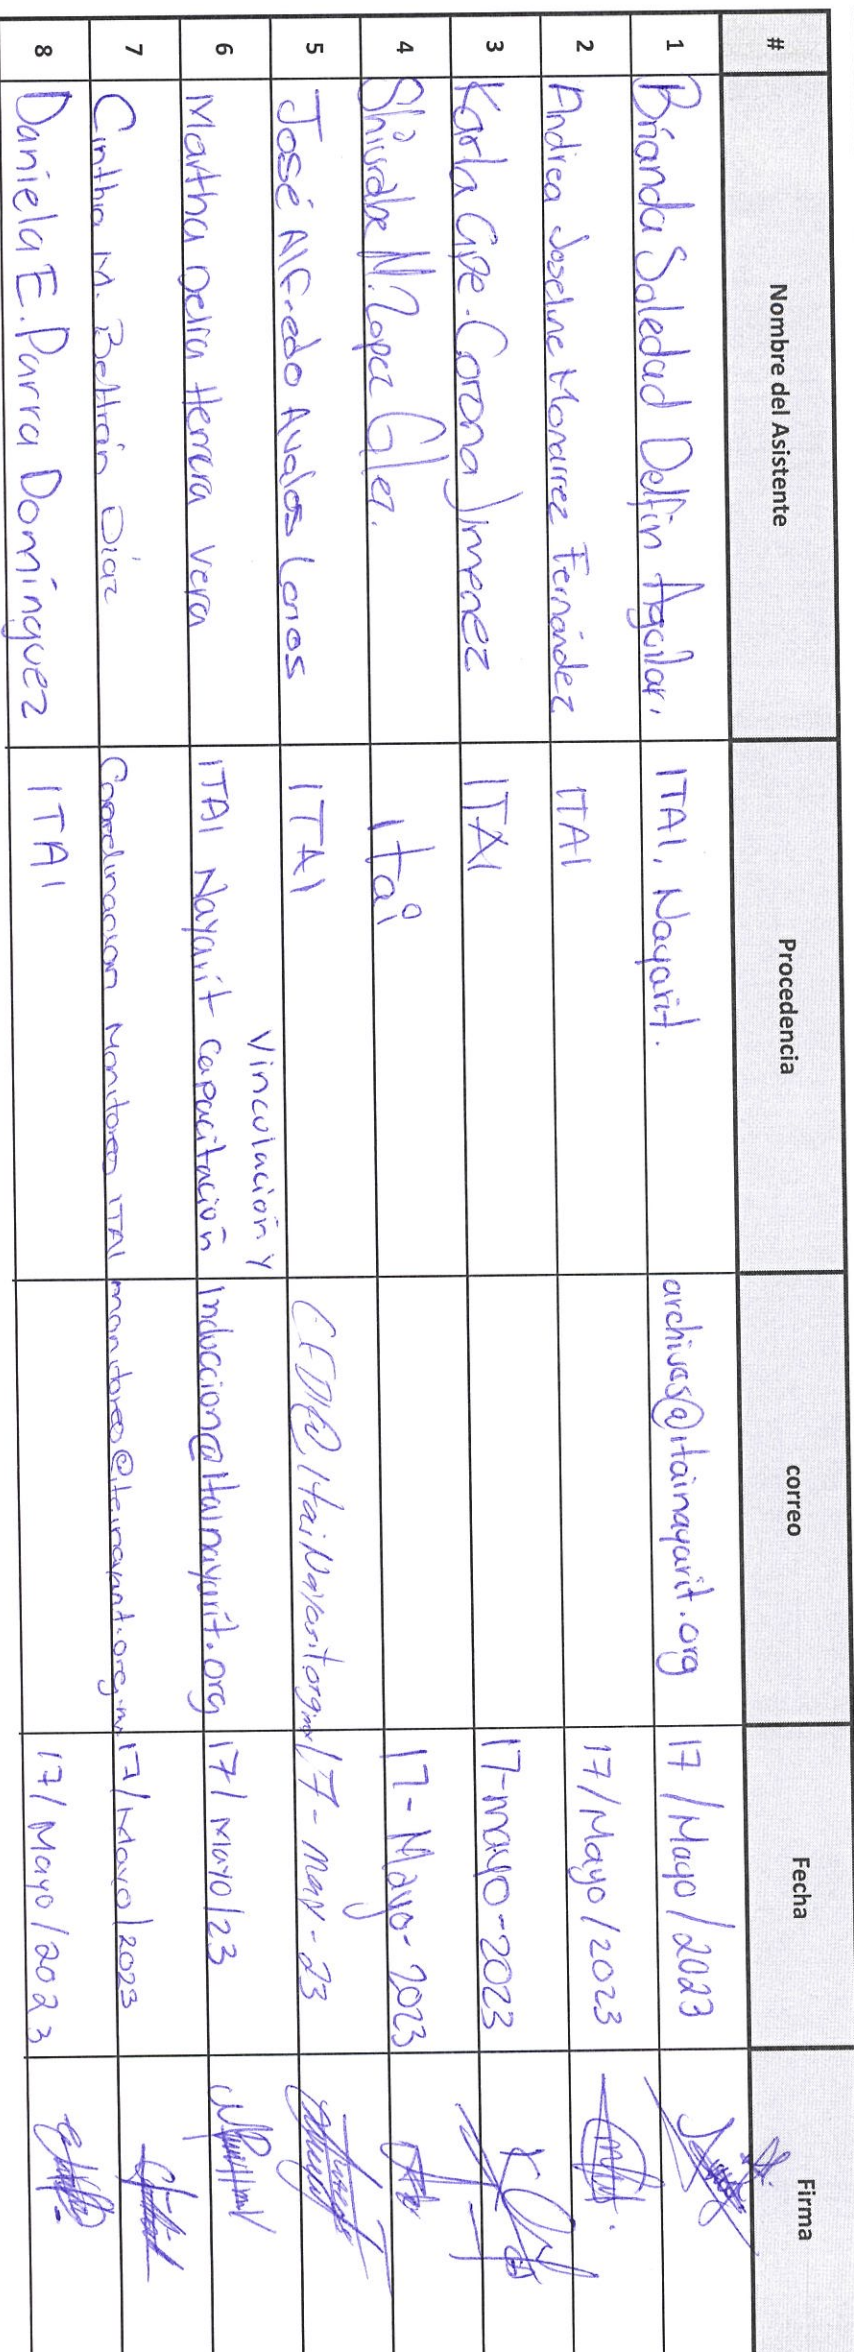 # Nombre del Asistente Procedencia correo Fecha Firma
1 Brianda Soledad Delfín Aguilar. ITAI, Nayarit. archivos@itainayarit.org 17/Mayo/2023
2 Andrea Joseline Monarrez Fernández ITAI 17/Mayo/2023
3 Karla Gpe. Corona Jimenez ITAI 17-mayo-2023
4 N. Lopez Glez. Itai 17-Mayo-2023
5 José Alfredo Avalos ITAI 17- -23
6 Martha Delia Herrera Vera ITAI Nayarit Capacitación Vinculación y Induccion@itainayarit.org 17/Mayo/23
7 Cinthia M. Beltrán Díaz Coordinacion Monitoreo ITAI monitoreo@itainayarit.org.mx 17/Mayo/2023
8 Daniela E. Parra Domínguez ITAI 17/Mayo/2023